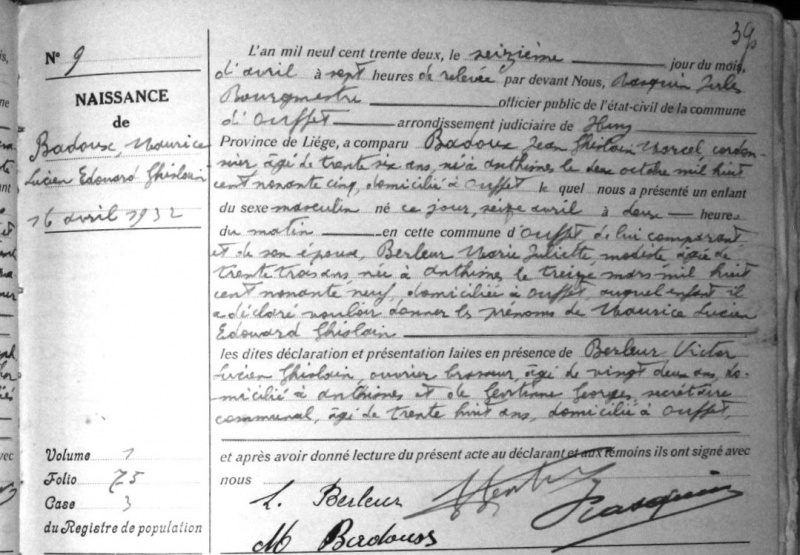 39
N° 9
NAISSANCE
de
Badoux, Maurice
Lucien Edouard Ghislain
16 avril 1932
L'an mil neuf cent trente deux, le seizième jour du mois,
d'avril à sept heures de relevée par devant Nous, Rasquin Jules
Bourgmestre officier public de l'état-civil de la commune
d'Ouffet arrondissement judiciaire de Huy
Province de Liége, a comparu Badoux Jean Ghislain Marcel, cordon-
nier âgé de trente six ans, né à Anthisnes le deux octobre mil huit
cent nonante cinq, domicilié à Ouffet le quel nous a présenté un enfant
du sexe masculin né ce jour, seize avril à deux heures
du matin en cette commune d'Ouffet de lui comparant
et de son épouse, Berleur Marie Juliette, modiste âgée de
trente trois ans née à Anthisnes le treize mars mil huit
cent nonante neuf, domiciliée à Ouffet, auquel enfant il
a déclaré vouloir donner les prénoms de Maurice Lucien
Edouard Ghislain
les dites déclaration et présentation faites en présence de Berleur Victor
Lucien Ghislain, ouvrier brasseur, âgé de vingt deux ans, do-
micilié à Anthisnes et de Georges, secrétaire
communal, âgé de trente huit ans, domicilié à Ouffet,
et après avoir donné lecture du présent acte au déclarant et aux témoins ils ont signé avec
nous
Volume 1
Folio 75
Case 3
du Registre de population
L. Berleur
Rasquin
M Badoux